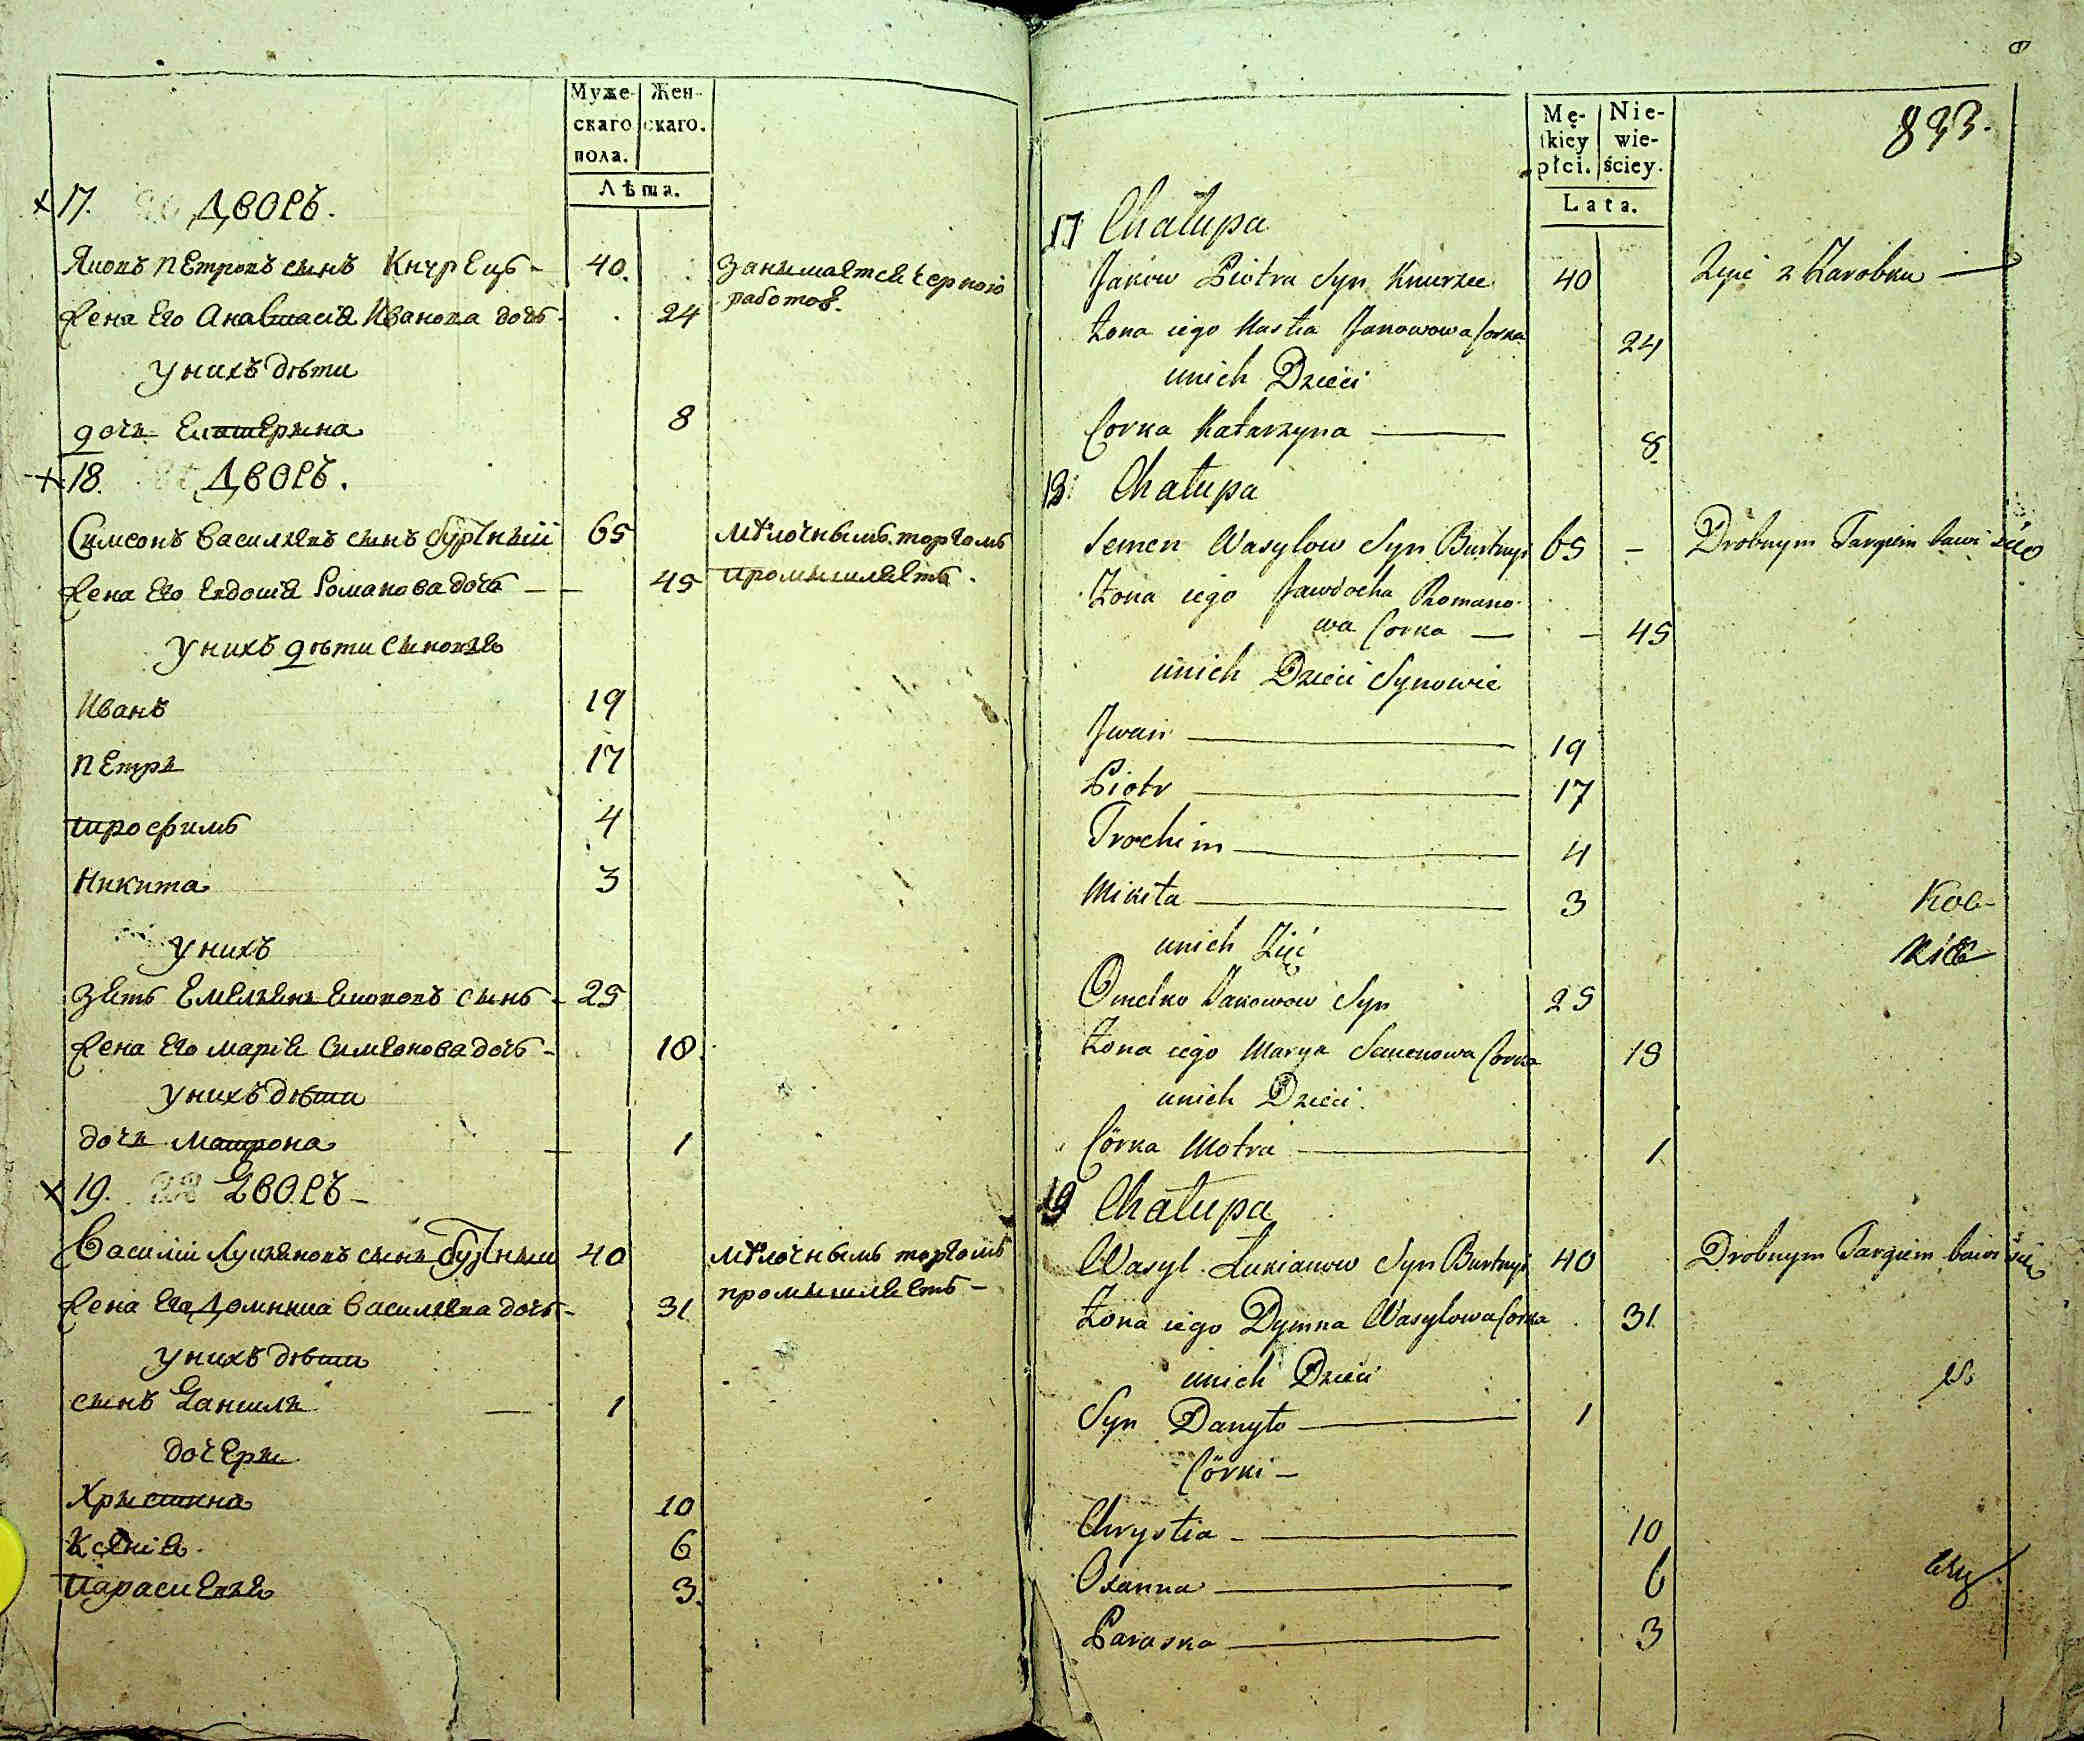 Муже-
скаго
пола.
Жен-
скаго.
Лѣта.
17. ДВОРЪ.
Яковъ Петровъ сынъ Кнурецъ - 40. занимается черною
работою.
Жена Его Анастасія Иванова дочь - 24
у нихъ дѣти
дочь Екатерина 8
18. ДВОРЪ.
Симеонъ Василіевъ сынъ Буртный 65 мѣлочнымъ торгомъ
промышляетъ.
Жена Его Евдокія Романова дочь - 45
у нихъ дѣти сыновья
Иванъ 19
Петръ 17
Трофимъ 4
Никита 3
у нихъ
зять Емельянъ Якововъ сынъ - 25
Жена Его Марія Симеонова дочь - 18.
у нихъ дѣти
дочь Матрона 1
19. 22 ДВОРЪ -
Василій Лукьяновъ сынъ Буртный 40 мѣлочнымъ торгомъ
промышляетъ -
Жена Его Домникия Василіева дочь - 31
у нихъ дѣти
сынъ Даниилъ — 1
дочери
Христина 10
Ксенія 6
Параскевья 3.
833.
Mę-
skiey
płci.
Nie-
wie-
ściey.
Lata.
17 Chałupa
Jakow Piotra Syn Knurzec 40 Żyie z Zarobku —
Żona iego Nastia Janowowa Corka 24
unich Dzieci
Corka Katarzyna — 8
18 Chałupa
Semen Wasylow Syn Burtnyi 65 - Drobnym Targiem bawi się
Żona iego Jawdocha Romano-
wa Corka — - 45
unich Dzieci Synowie
Jwan — 19
Piotr — 17
Trochim — 4
Mikita — 3
unich Zięć
Omelko Jakowow Syn 25
Żona iego Marya Semenowa Corka 18
unich Dzieci
Córka Motra — 1
19 Chałupa
Wasyl Łukianow Syn Burtnyi 40 Drobnym Targiem bawi się
Żona iego Dymna Wasylowa Corka 31.
unich Dzieci
Syn Danyło — 1
Córki —
Chrystia — 10
Oxanna — 6
Paraska — 3